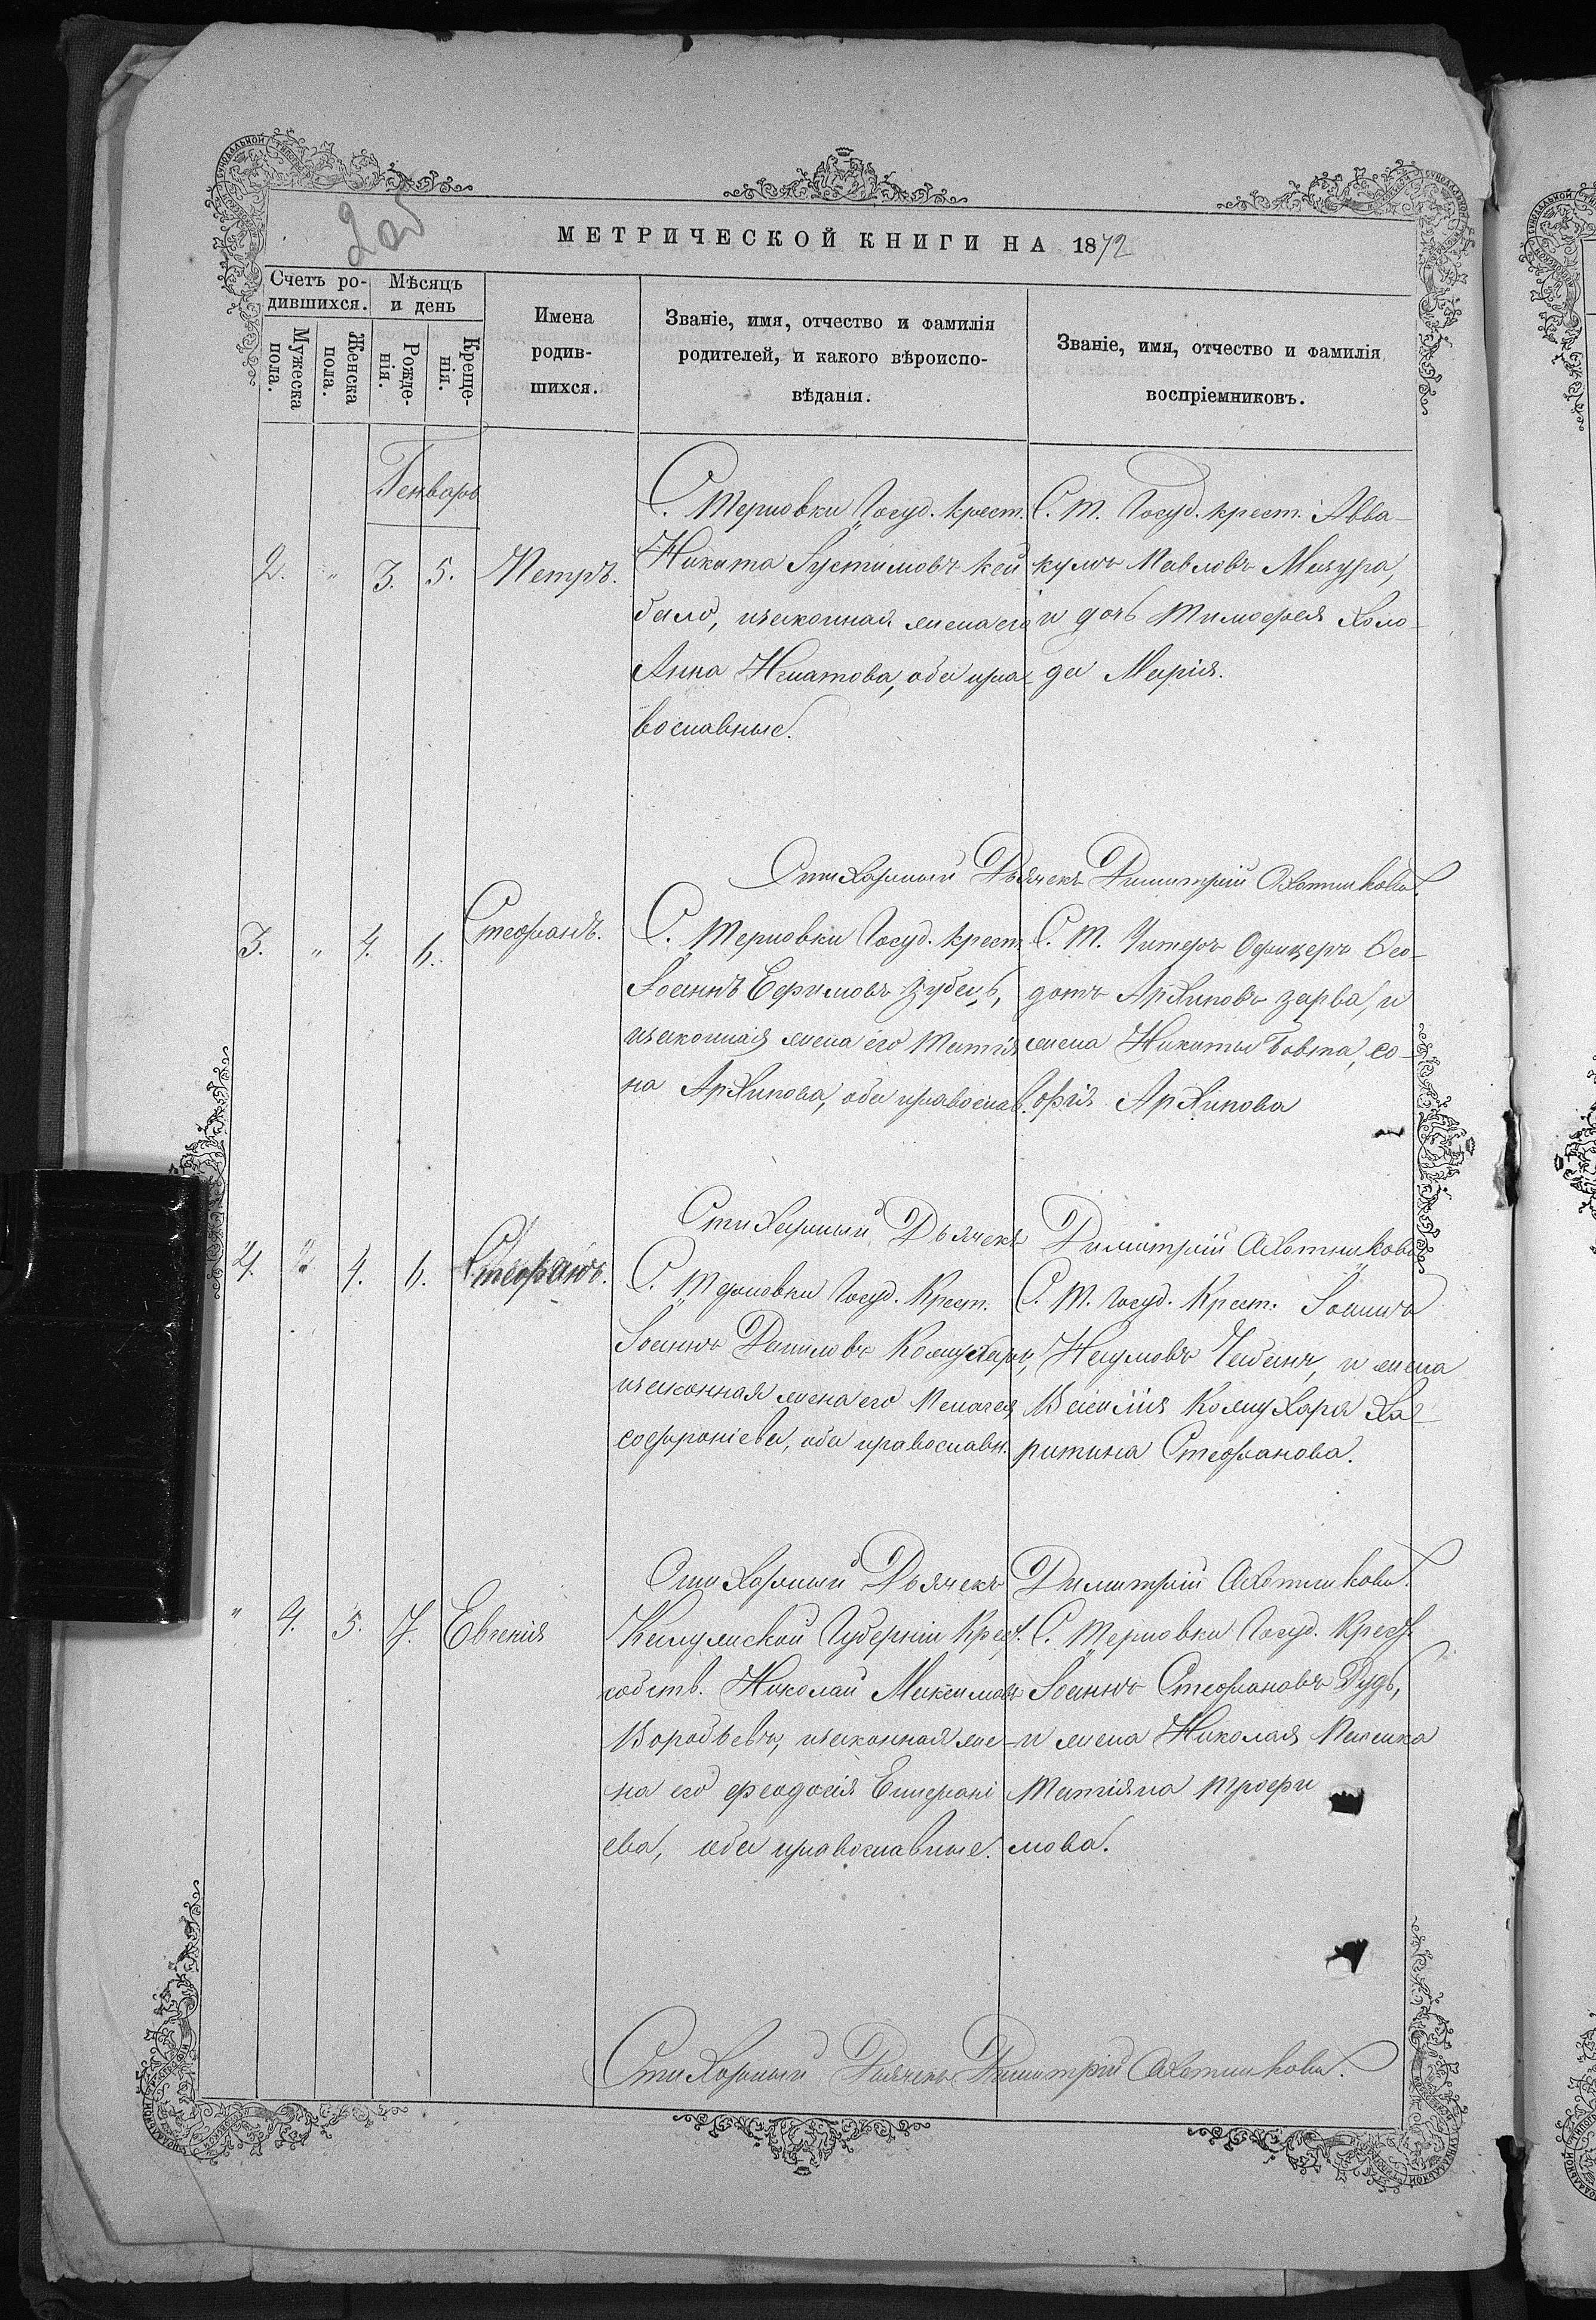 2 об
МЕТРИЧЕСКОЙ КНИГИ НА 1872
Счетъ ро-
дившихся.
Мѣсяцъ
и день
Мужеска
пола.
Женска
пола.
Рожде-
нія.
Креще-
нія.
Имена
родив-
шихся.
Званіе, имя, отчество и фамилія
родителей, и какого вѣроиспо-
вѣданія.
Званіе, имя, отчество и фамилія
воспріемниковъ.
Генварь
2. " 3. 5. Петръ.
С. Терновки Госуд. крест.
Никита Іустимовъ Кей
было, и законная жена его
Анна Игнатова, оба пра-
вославные.
С. Т. Госуд. крест. Авва-
кумъ Павловъ Мазура,
и дочь Тимофея Холо-
да Марія.
Стихарный Дьячекъ Димитрій Охотниковъ.
3. " 4. 6. Стефанъ.
С. Терновки Госуд. крест.
Іоаннъ Ефимовъ Зубецъ,
и законная жена его Татія
на Архипова, оба православ.
С. Т. Унтеръ Офицеръ Фео-
дотъ Архиповъ Зарва, и
жена Никиты Бовта, Со-
фія Архипова
Стихарный Дьячекъ Димитрій Охотниковъ
4. " 4. 6. Стефанъ.
С. Терновки Госуд. Крест.
Іоаннъ Даниловъ Кожухарь,
и законная жена его Пелагея
Софроніева, оба православн.
С. Т. Госуд. Крест. Іоаннъ
Наумовъ Чабанъ, и жена
Василія Кожухаря Ха-
ритина Стефанова.
Стихарный Дьячекъ Димитрій Охотниковъ.
" 4. 5. 7. Евгенія
Калужской Губерніи Крест.
собств. Николай Максимовъ
Воробьевъ, и законная же-
на его Феодосія Епифані
ева, оба православные.
С. Терновки Госуд. Крест.
Іоаннъ Стефановъ Дудъ,
и жена Николая
Татіяна Трофи
мова.
Стихарный Дьячекъ Димитрій Охотниковъ.